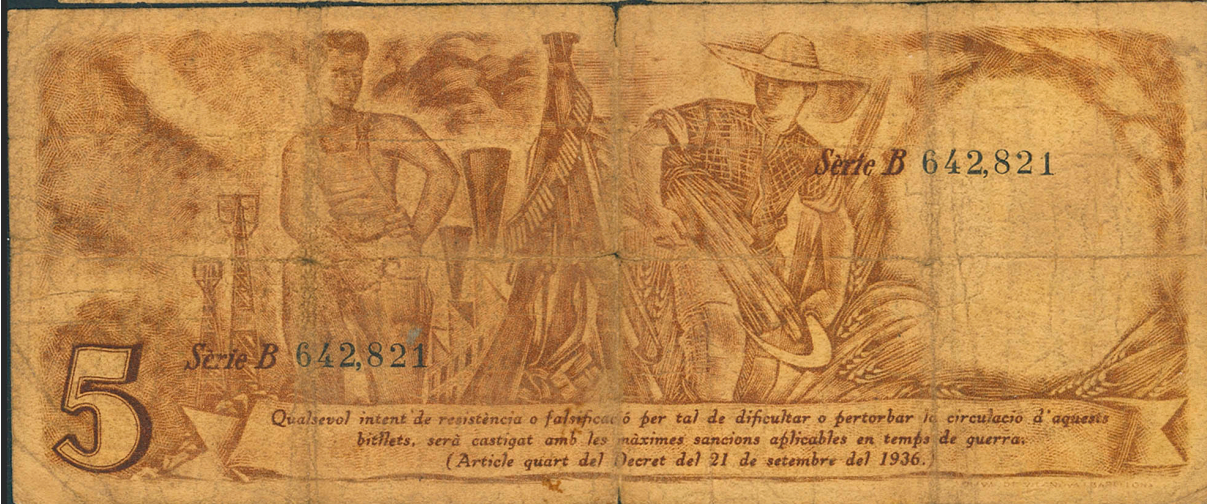 Sèrie B 642,821
Sèrie B 642,821
5
Qualsevol intent de resistència o falsificació per tal de dificultar o pertorbar la circulació d'aquests
bitllets, serà castigat amb les màximes sancions aplicables en temps de guerra.
(Article quart del Decret del 21 de setembre del 1936.)